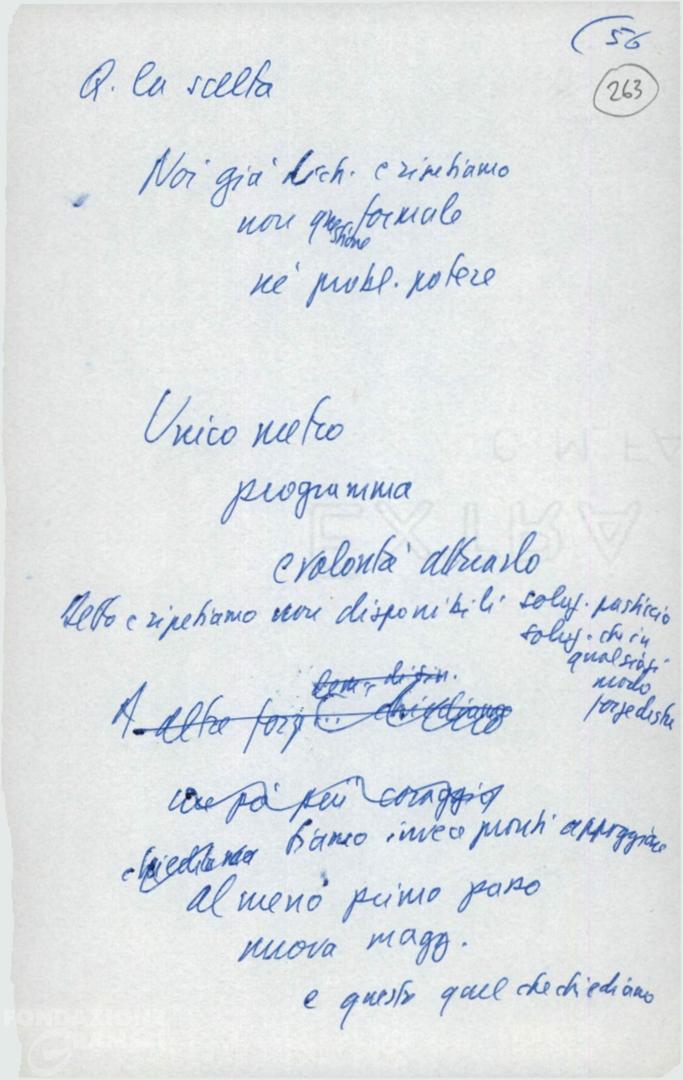 56
263
Q. la scelta
Noi già dich. e ripetiamo
non questione formale
né probl. potere
Unico metro
programma
e volontà attuarlo
Detto e ripetiamo non disponibili soluz. pasticcio
soluz. che in
qualsiasi
modo
forze destra
A altre forze
chiediamo
un pò più coraggio
chiediamo Siamo invece pronti appoggiare
almeno primo passo
nuova magg.
e questo quel che chiediamo
FONDAZIONE
GRAMSCI